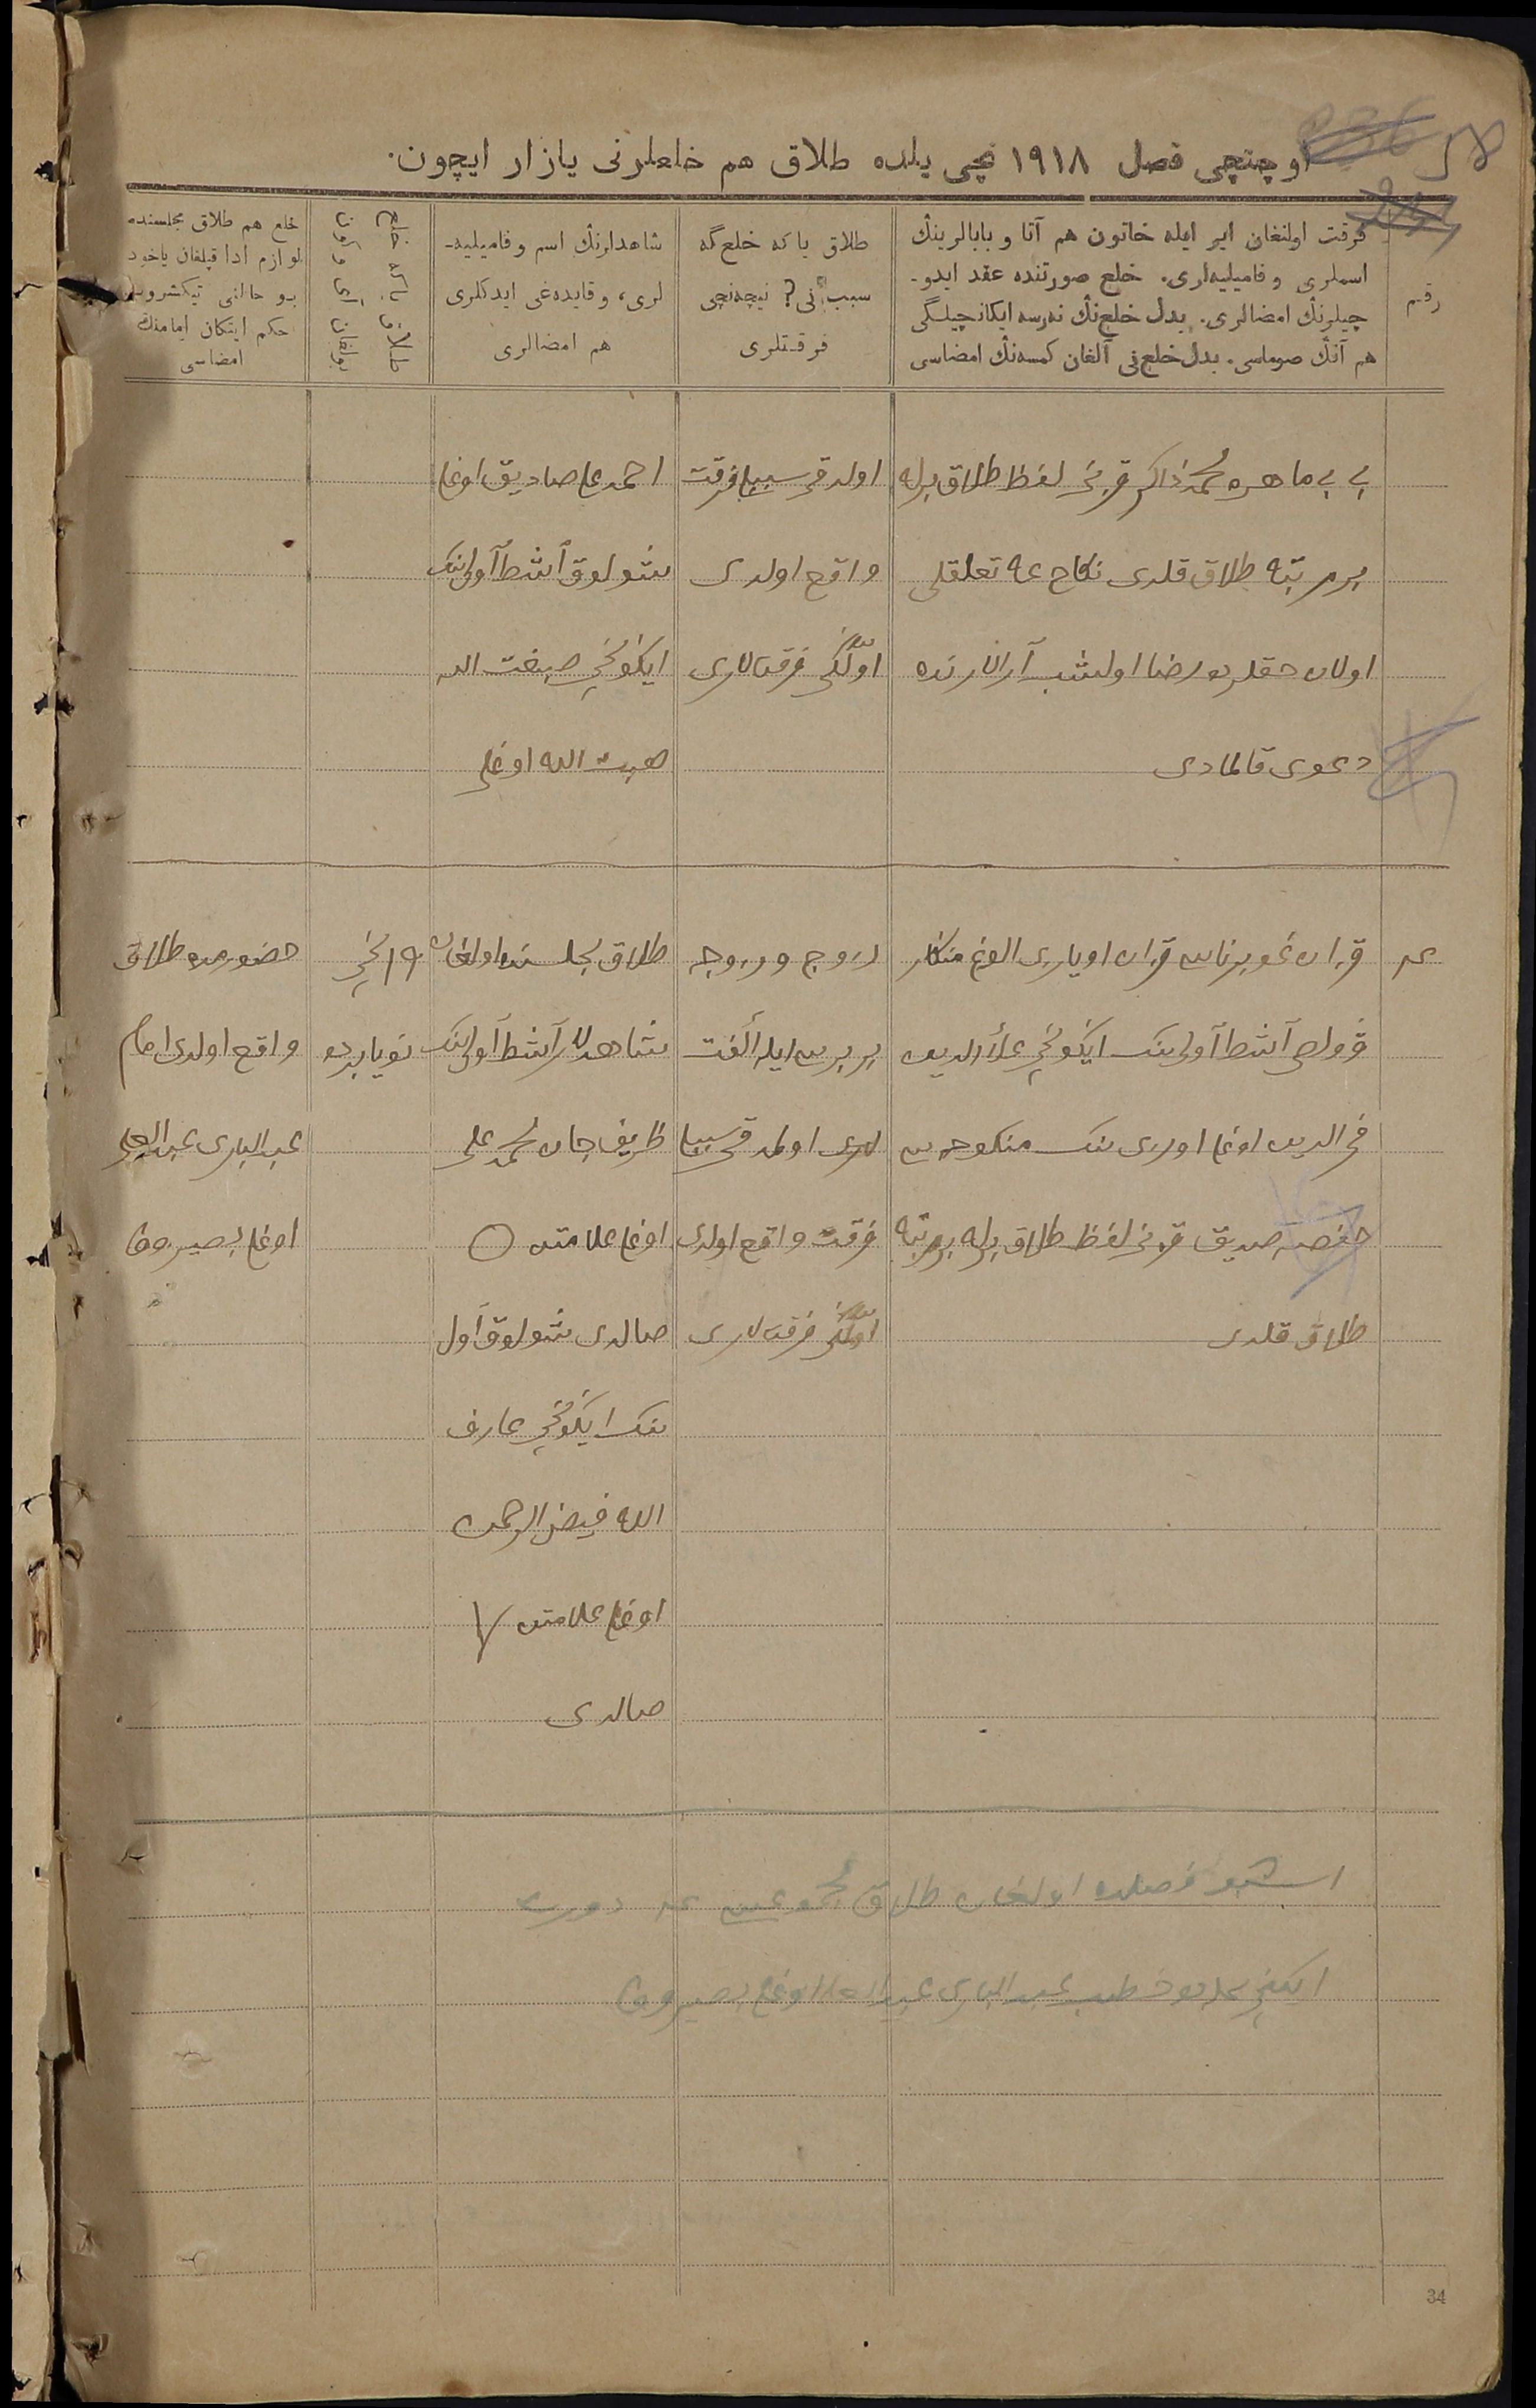 ٥٨
اوچنچی فصل ۱۹۱۸ نچی یلده طلاق هم خلعلرنی یازار ایچون.
رقم
فرقت اولنغان ایر ایله خاتون هم آتا و بابالرینڭ
اسملری و فامیلیه‌لری. خلع صورتنده عقد ایدو-
چیلرنڭ امضالری. بدل خلع‌نڭ نه‌رسه ایکانچیلگی
هم آنڭ صوماسی. بدل خلع‌نی آلغان کمسه‌نڭ امضاسی
طلاق یا که خلع گه
سبب نی؟ نیچه‌نچی
فرقتلری
شاهدلرنڭ اسم و فامیلیه-
لری، و قایده‌غی ایدکلری
هم امضالری
خلع یا که طلاق
خلع هم طلاق مجلسنده
لوازم ادا قیلغان یاخود
بو حالنی تیکشروب
حکم ایتکان امامنڭ
امضاسی
بی بی ماهره محمدذاکر قزنی لفظ طلاق برله
بر مرتبه طلاق قلدی نکاح غه تعلقلی
اولان حقلر‌ده رضا اولشب آرالارنده
دعوی قالمادی
اولدقی سببلی فرقت
واقع اولدی
اولگی فرقت‌لاری
احمدعلی صادیق اوغلی
شولوق آشط آولی‌ننک
ایکونچی صبغت الله
هبت الله اوغلی
قزان غوبرناسی قزان اویازی الوغ منگار
وولصی آشط آولی‌ننک ایکونچی علاءالدین
فخرالدین اوغلی اوزی ننک منکوحه‌سی
حفصه صدیق قزنی لفظ طلاق برله بر مرتبه
طلاق قلدی
زوج و زوجه
بر برسی ایله ألفت
لری اولمدقی سببلی
فرقت واقع اولدی
اولگی فرقت‌لاری
طلاق مجلسنده اولغان
شاهدلار آشط آولی‌ننک
ظریف‌جان محمدعلی
اوغلی علامتن ○
صالدی شولوق آول
ننک ایکونچی عارف
الله فیض‌الرحمن
اوغلی علامتن
صالدی
۱۹نچی
نویابرده
حضورمده طلاق
واقع اولدی امام
عبدالباری عبدالعلی
اوغلی بصیروف
اوشبو فصلده اولغان طلاق مجموعسی دورت
ایکنچی محله‌ده خطیب عبدالباری عبدالعلی اوغلی بصیروف
34